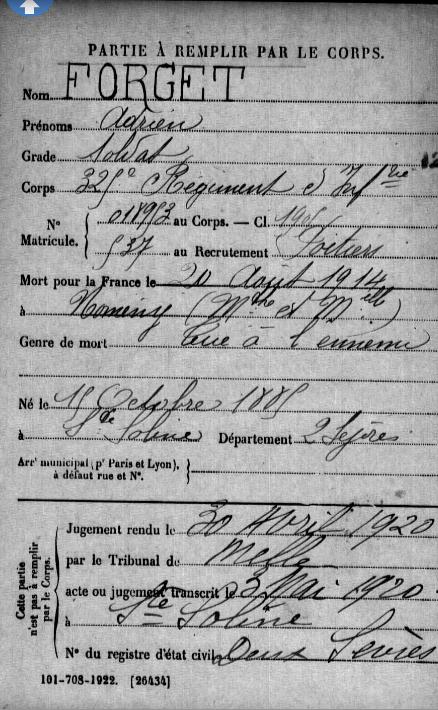 PARTIE À REMPLIR PAR LE CORPS.
Nom FORGET
Prénoms Adrien
Grade Soldat
Corps 325e Régiment d'Infrie
N° Matricule. 018953 au Corps. — Cl. 1905
537 au Recrutement Poitiers
Mort pour la France le 20 Août 1914
à Nomény (Mthe et Mlle)
Genre de mort Tué à l'ennemi
Né le 15 Octobre 1885
à Ste Soline Département 2 Sèvres
Arrt municipal (pr Paris et Lyon),
à défaut rue et N°.
Cette partie n'est pas à remplir par le Corps.
Jugement rendu le 30 Avril 1920
par le Tribunal de Melle
acte ou jugement transcrit le 3 Mai 1920
à Ste Soline
N° du registre d'état civil Deux Sèvres
101-708-1922. [26434]